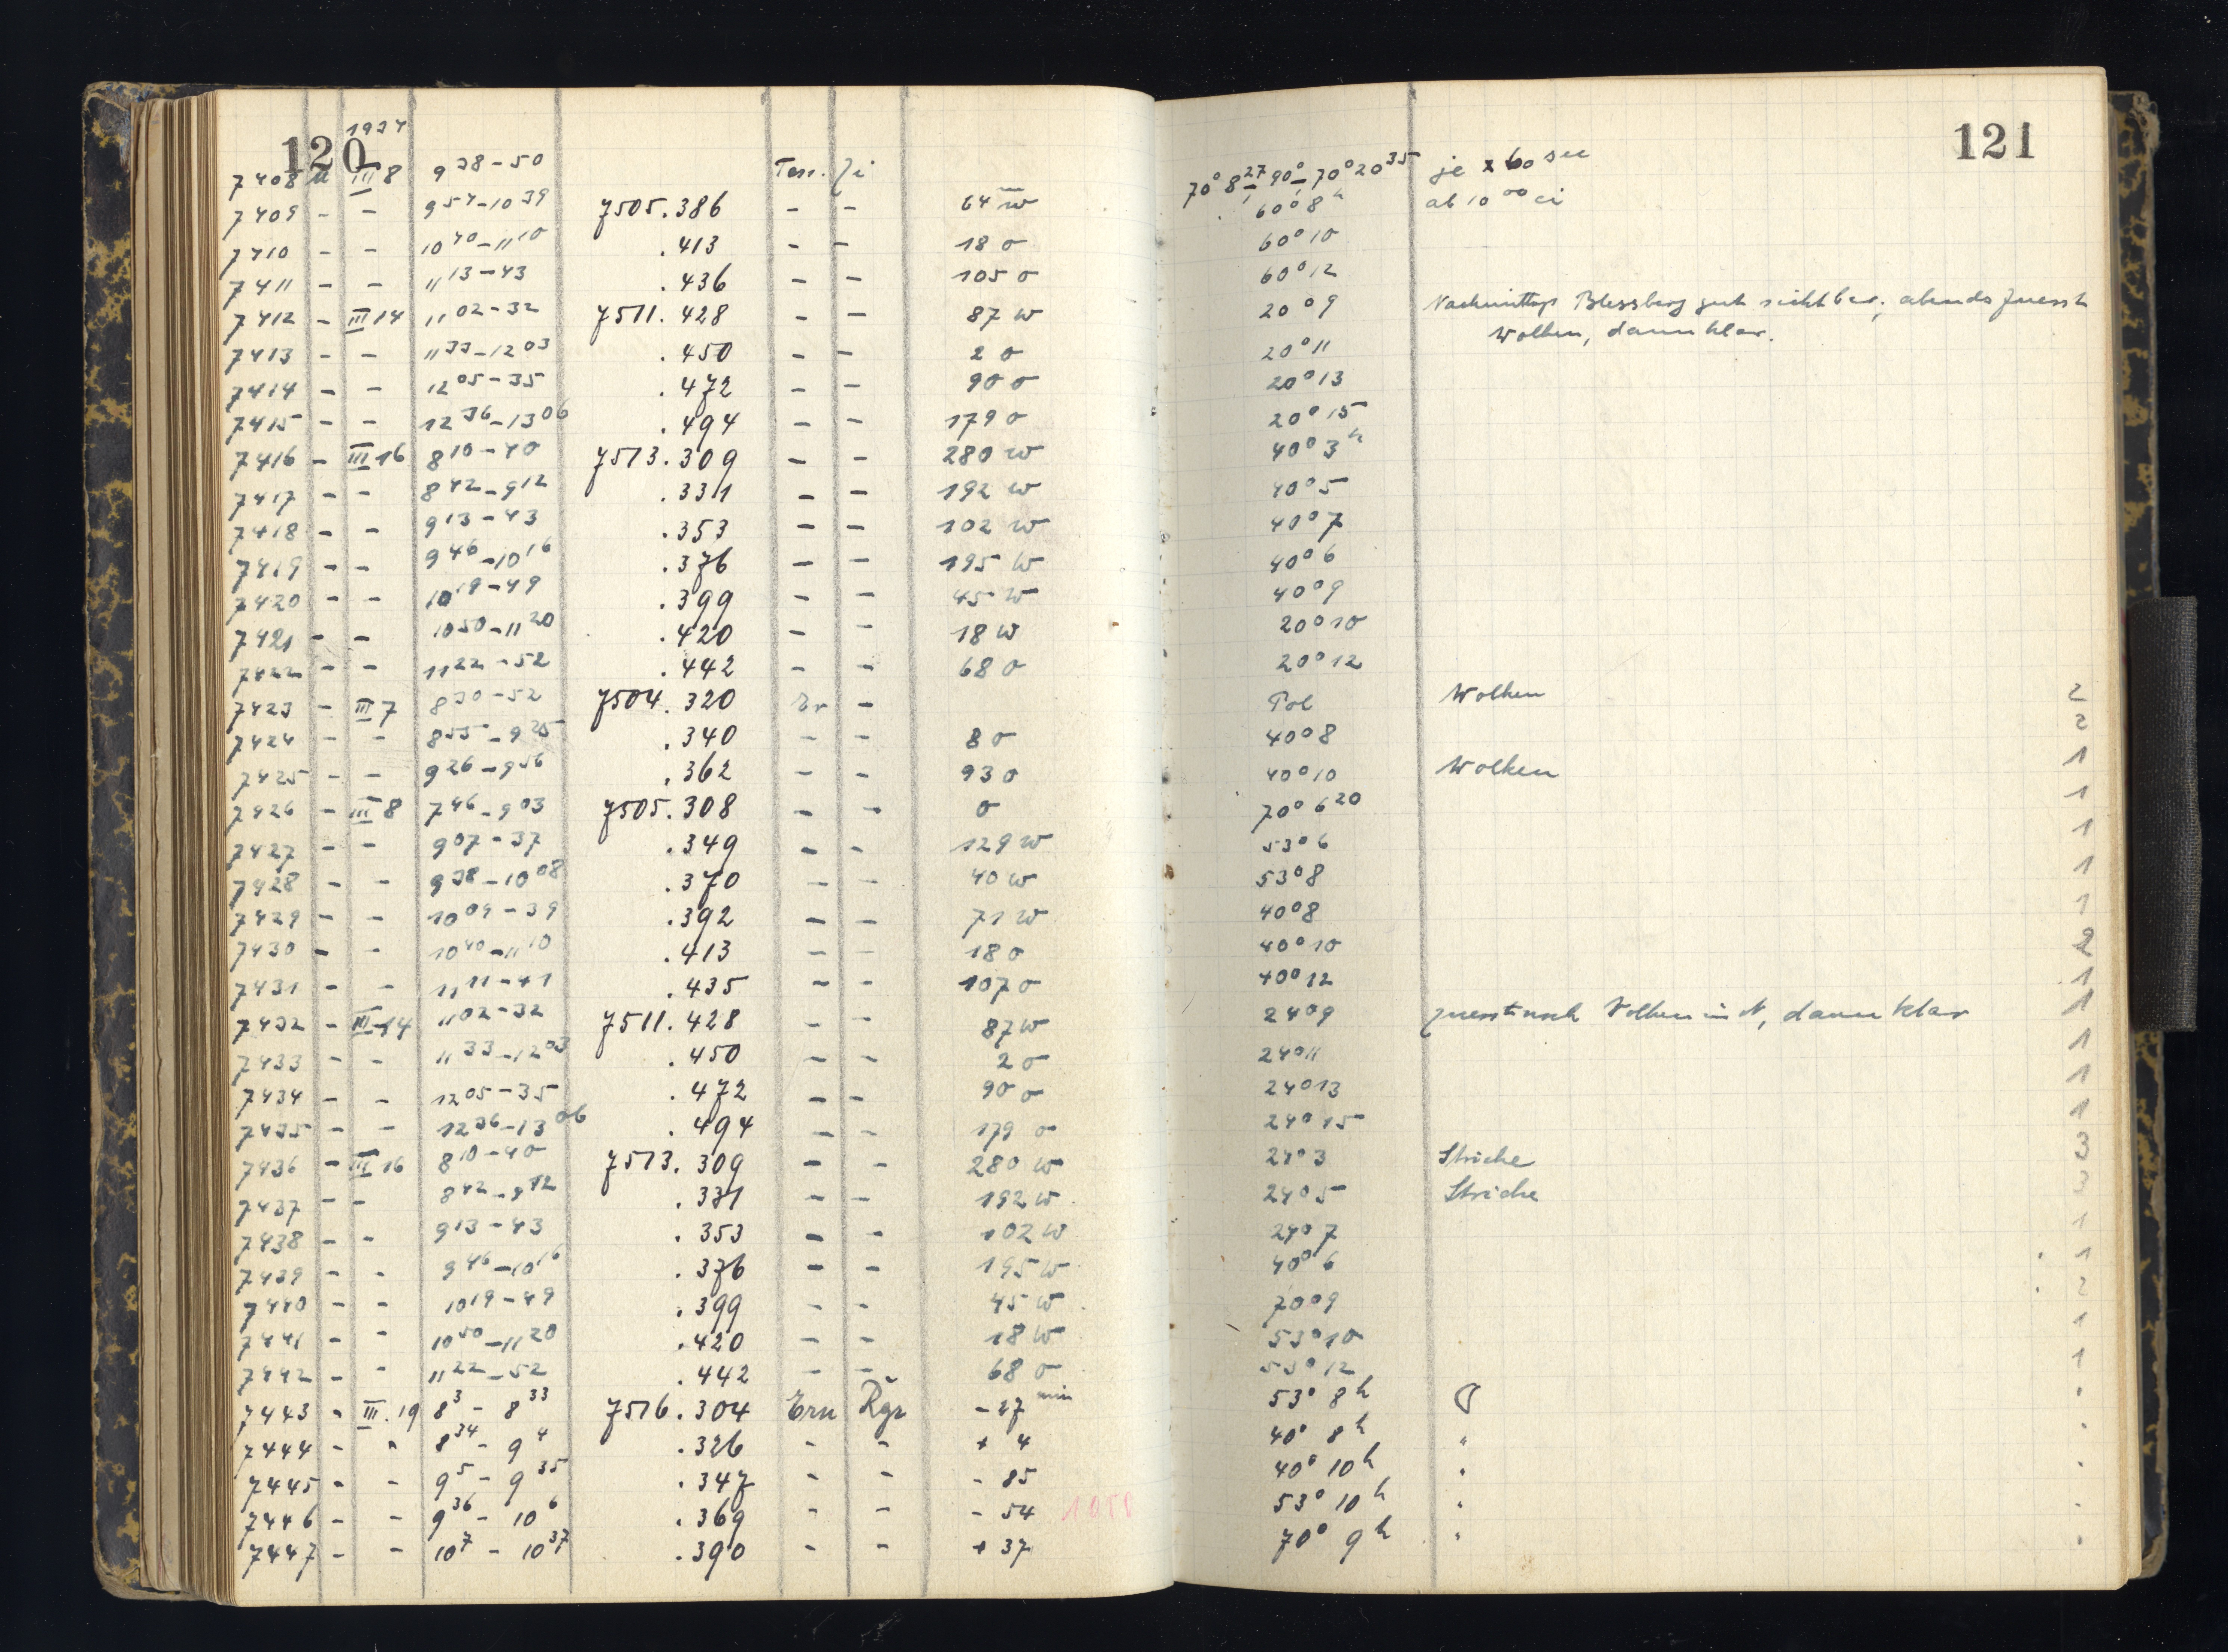 120 1937 121
7408 u III 8 9 38-50 Tess. Zi 70° 8 27 90° 70° 20 35 je 60 sec
7409 - - 9 54-10 39 7505.386 - - 64 w 60° 8 h ab 10 00 ci
7410 - - 10 40-11 10 .413 - - 18 o 60° 10
7411 - - 11 13-43 .436 - - 105 o 60° 12
7412 - III 14 11 02-32 7511.428 - - 87 w 20° 9 Nachmittags Blessberg gut sichtbar, abends zuerst
Wolken, dann klar.
7413 - - 11 33-12 03 .450 - - 2 o 20° 11
7414 - - 12 05-35 .472 - - 90 o 20° 13
7415 - - 12 36-13 06 .494 - - 179 o 20° 15
7416 - III 16 8 10-40 7513.309 - - 280 w 40° 3 h
7417 - - 8 42-9 12 .331 - - 192 w 40° 5
7418 - - 9 13-43 .353 - - 102 w 40° 7
7419 - - 9 46-10 16 .376 - - 195 w 40° 6
7420 - - 10 19-49 .399 - - 45 w 40° 9
7421 - - 10 50-11 20 .420 - - 18 w 20° 10
7422 - - 11 22-52 .442 - - 68 o 20° 12
7423 - III 7 8 30-52 7504.320 Er - Pol Wolken 2
7424 - - 8 55-9 25 .340 - - 8 o 40° 8 2
7425 - - 9 26-9 56 .362 - - 93 o 40° 10 Wolken 1
7426 - III 8 7 46-9 03 7505.308 - - o 70° 6 20 1
7427 - - 9 07-37 .349 - - 129 w 53° 6 1
7428 - - 9 38-10 08 .370 - - 40 w 53° 8 1
7429 - - 10 09-39 .392 - - 71 w 40° 8 1
7430 - - 10 40-11 10 .413 - - 18 o 40° 10 2
7431 - - 11 11-41 .435 - - 107 o 40° 12 1
7432 - III 14 11 02-32 7511.428 - - 87 w 24° 9 zuerst noch Wolken in N, dann klar 1
7433 - - 11 33-12 03 .450 - - 2 o 24° 11 1
7434 - - 12 05-35 .472 - - 90 o 24° 13 1
7435 - - 12 36-13 06 .494 - - 179 o 24° 15 1
7436 - III 16 8 10-40 7513.309 - - 280 w 24° 3 Striche 3
7437 - - 8 42-9 12 .331 - - 192 w 24° 5 Striche 3
7438 - - 9 13-43 .353 - - 102 w 24° 7 1
7439 - - 9 46-10 16 .376 - - 195 w 40° 6 1
7440 - - 10 19-49 .399 - - 45 w 70° 9 2
7441 - - 10 50-11 20 .420 - - 18 w 53° 10 1
7442 - - 11 22-52 .442 - - 68 o 53° 12 1
7443 - III.19 8 3 - 8 33 7516.304 Ern Rgr -27 min 53° 8 h
7444 - " 8 34 - 9 4 .326 - - + 4 40° 8 h "
7445 - - 9 5 - 9 35 .347 - - - 85 40° 10 h "
7446 - - 9 36 - 10 6 .369 - - - 54 53° 10 h "
7447 - - 10 7 - 10 37 .390 - - + 37 70° 9 h "